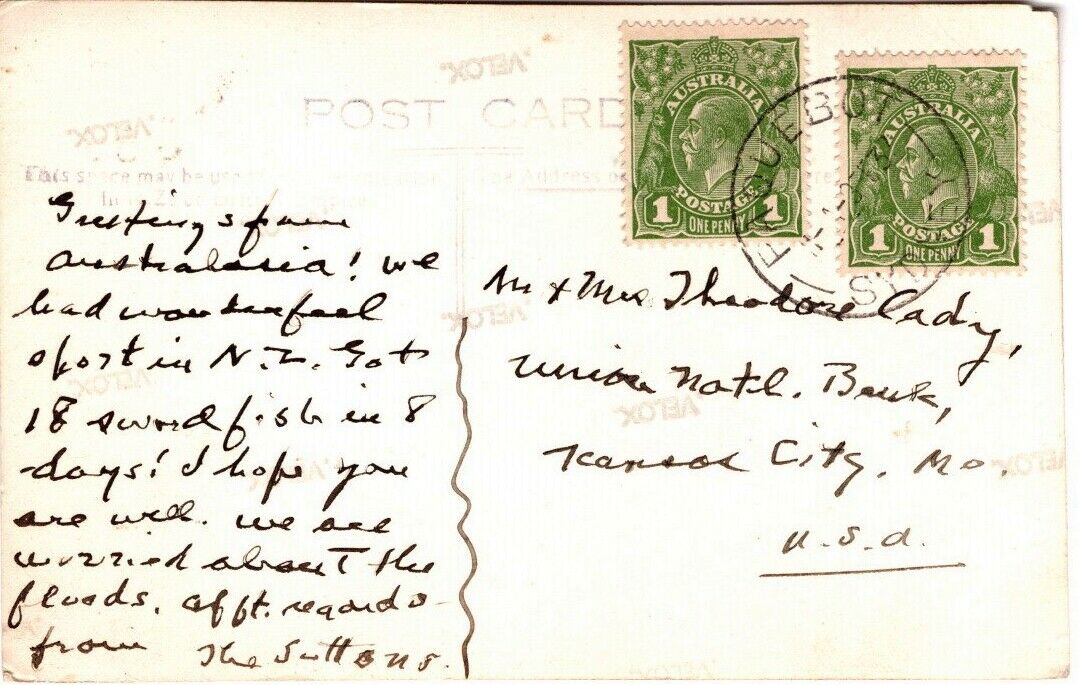 POST CARD
VELOX.
VELOX.
This space may be used
The Address
Greetings from
Australasia! We
had wonderful
sport in N.Z. Got
18 swordfish in 8
days! I hope you
are well. We are
worried about the
floods. Afft. regards
from The Suttons.
Mr & Mrs Theodore Cady,
Union Natl. Bank,
Kansas City, Mo.
U.S.A.
AUSTRALIA
POSTAGE
1 ONE PENNY 1
AUSTRALIA
POSTAGE
1 ONE PENNY 1
PAQUEBOT
VELOX.
VELOX.
VELOX.
VELOX.
VELOX.